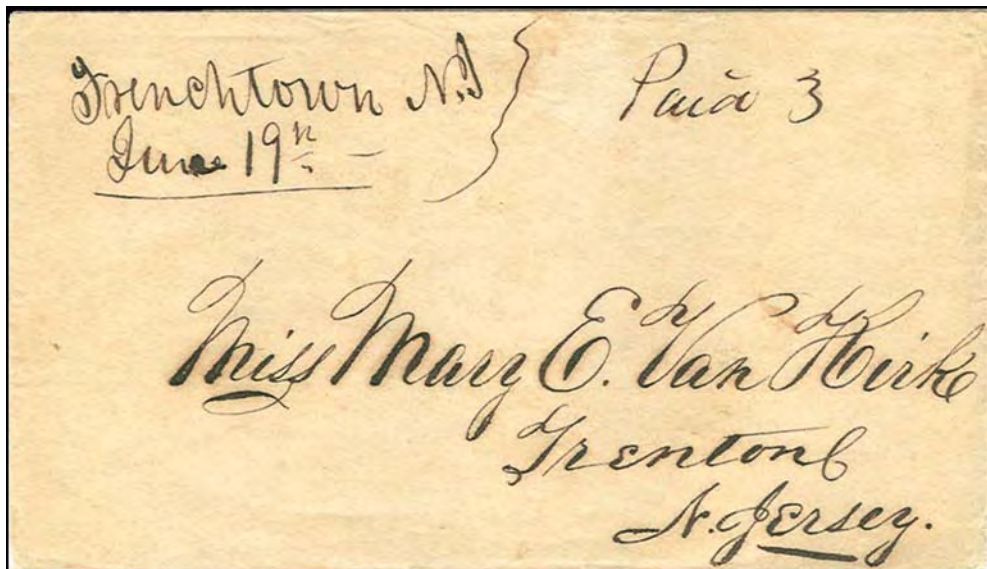 Frenchtown N.J
June 19th
Paid 3
Miss Mary E. Van Kirk
Trenton
N. Jersey.